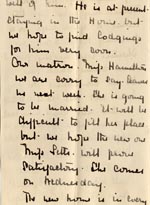 well of him. He is at present
staying in the Home. but
we hope to find Lodgings
for him very soon.
Our matron Miss Hamilton
we are sorry to say leaves
us next week. She is going
to be married. It will be
difficult to fill her place
but we hope the new one
Miss will prove
satisfactory. She comes
on Wednesday.
The new home is in every